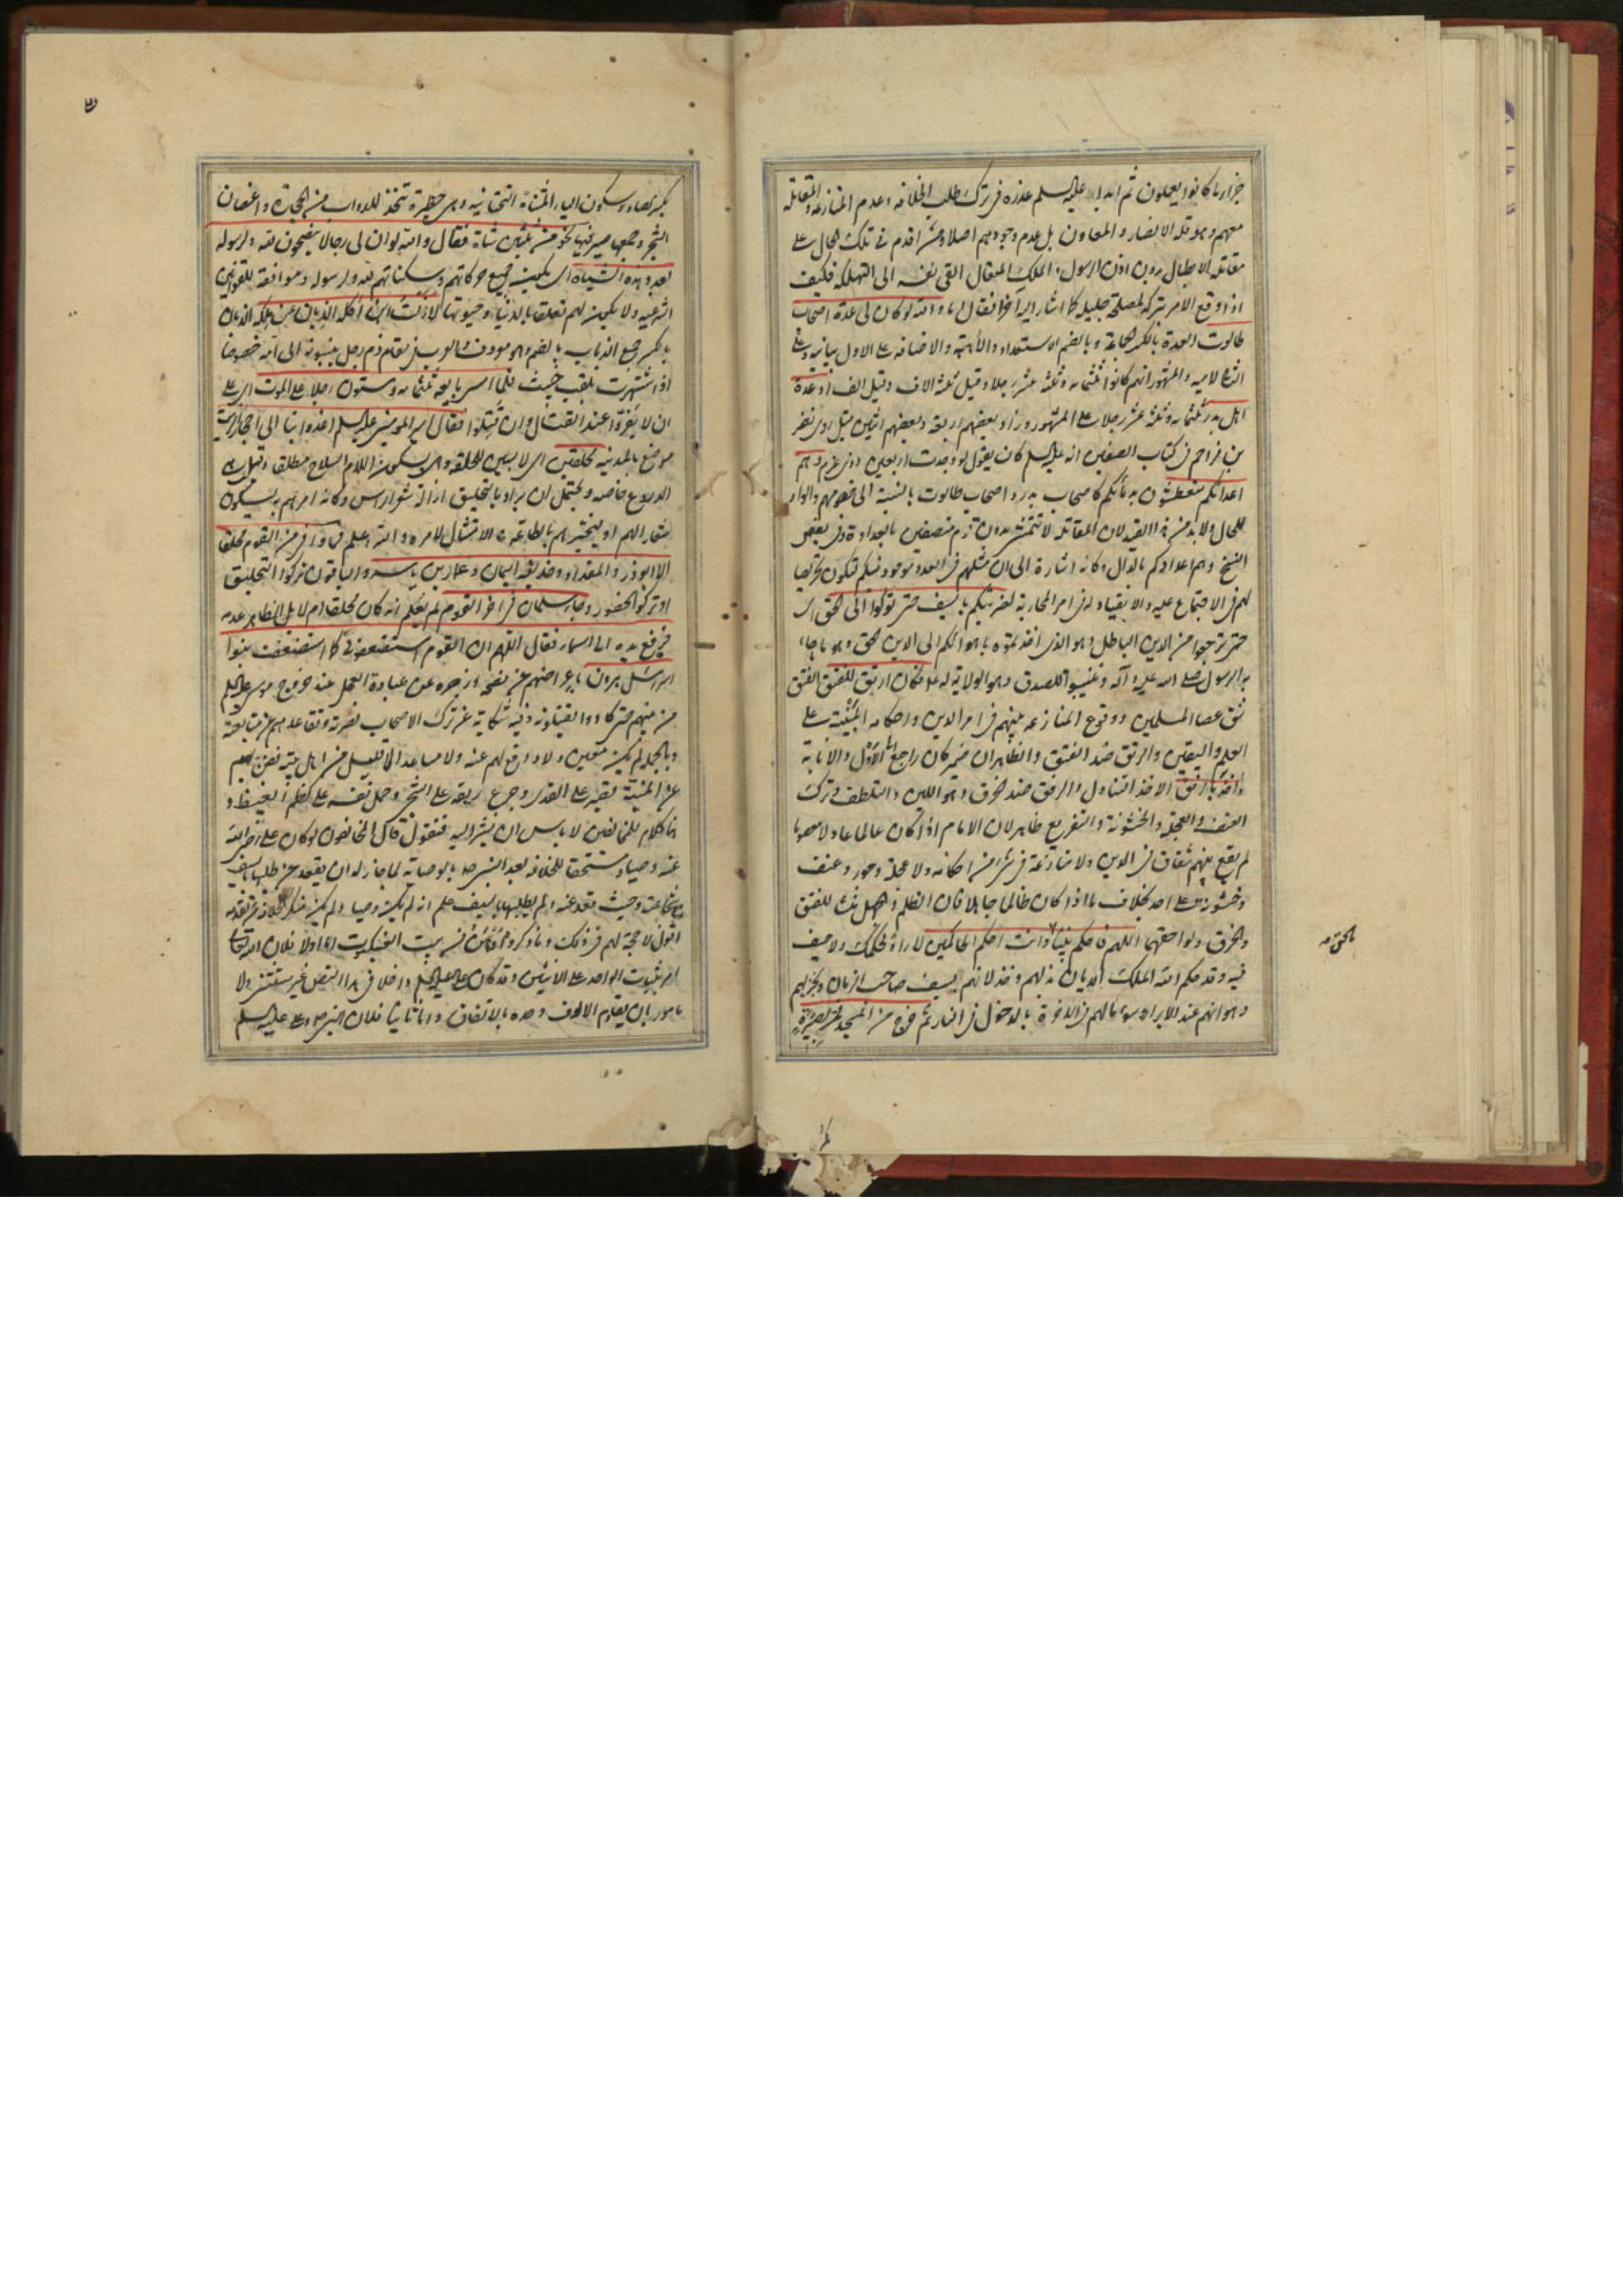 جزاء بما كانوا يعملون ثم ابدا عليه السلم عذره فى ترك طلب الخلافه وعدم المنازعة والمقاتله
معهم وهو قلة الانصار والمعاون بل عدم وجودهم اصلا ومن اقدم فى تلك الحال على
مقاتلة الابطال بدون اذن الرسول الملك المتعال القى نفسه الى التهلكة فكيف
اذا وقع الامر بتركه لمصلحة جليله كما اشار اليه آخرا فقال اما والله لو كان لى عدة اصحاب
طالوت العدة بالكسر الجماعة وبالضم الاستعداد والأهبة والاضافه على الاول بيانيه وعلى
الثانى لاميه والمشهور انهم كانوا ثلثمائه وثلثه عشر رجلا وقيل ثلثة الاف وقيل الف او عدة
اهل بدر ثلثمائه وثلثة عشر رجلا على المشهور وزاد بعضهم اربعة وبعضهم اثنين قيل روى نصر
بن مزاحم فى كتاب الصفين انه عليه السلم كان يقول لو وجدت اربعين ذوى عزم وهم
اعدائكم
للحال ولا بد من هذا القيد لان المقاتله لا تتمشى بدون قوم متصفين بالعداوة وفى بعض
النسخ وهم اعدادكم بالدال وكانه اشارة الى ان مثلهم فى العدد موجود فيكم فيكون تحريصا
لهم فى الاجتماع عليه والانقياد له فى امر المحاربة لضربتكم بالسيف حتى تؤلوا الى الحق اى
حتى ترجعوا من الدين الباطل وهو الذى اخذتموه باهوائكم الى الدين الحق وهو ما جاء
به الرسول صلى الله عليه وآله وتنيبوا للصدق وهو الولاية له فكان ارتق للفتق الفتق
شق عصا المسلمين ووقوع المنازعه بينهم فى امر الدين واحكامه المبتنية على
العلم واليقين والرتق ضد الفتق والظاهر ان ضمير كان راجع الى الاول والانابة
واخذ بالرفق الاخذ التناول والرفق ضد الخرق وهو اللين والتلطف وترك
العنف والعجلة والخشونة والتفريع ظاهر لان الامام اذا كان عالما عادلا معصوما
لم يقع بينهم شقاق فى الدين ولا منازعة فى شئ من احكامه ولا عجلة وجور وعنف
وخشونة على احد بخلاف ما اذا كان ظالما جاهلا فان الظلم والجهل منشأ للفتق
والخرق ولواحقهما اللهم فاحكم بيننا بالحق وانت احكم الحاكمين لا راد لحكمك ولا حيف
فيه وقد حكم الله الملك الديان بذلهم وخذلانهم بسيف صاحب الزمان وبخزيهم
وهوانهم عند الابرار وسوء مالهم فى الاخرة بالدخول فى النار ثم خرج من المسجد فمر بصيرة
بالحق صح
بكسر الصاد وسكون الياء المثناة التحتانيه وهى حظيرة تتخذ للدواب من الحجارة واغصان
الشجر وجمعها صير فيها نحو من ثلثين شاة فقال والله لو ان لى رجالا ينصحون لله ولرسوله
بعدد هذه الشياه اى يكون جميع حركاتهم وسكناتهم لله ولرسوله وموافقة للقوانين
الشرعيه ولا يكون لهم تعلق بالدنيا وحيوتها لازلت ابن آكلة الذبان عن ملكه الذبان
بالكسر جمع الذباب بالضم وهو معروف والعرب فى مقام ذم رجل ينسبونه الى امه خصوصا
اذا اشتهرت بلقب خبيث فلما امسى بايعه ثلثمائه وستون رجلا على الموت اى على
ان لا يفروا عند القتال وان قتلوا فقال امير المومنين عليه السلم اغدوا بنا الى احجار الزيت
موضع بالمدينه محلقين اى لابسين للحلقه وهى بسكون اللام السلاح مطلقا وقيل هى
الدروع خاصه ويحتمل ان يراد بالتحليق ازالة شعر الراس وكانه امرهم به ليكون
شعارا لهم او ليختبرهم بالطاعة والامتثال لامره والله اعلم فما وافى من القوم محلقا
الا ابو ذر والمقداد وحذيفة اليمان وعمار بن ياسر والباقون تركوا التحليق
او تركوا الحضور وجاء سلمان فى اخر القوم لم يعلم انه كان محلقا ام لا بل الظاهر عدمه
فرفع يده الى السماء فقال اللهم ان القوم استضعفونى كما استضعفت بنوا
اسرائيل هرون باعراضهم عن نصحه وزجره عن عبادة العجل عند خروج موسى عليه السلم
من بينهم حتى كادوا يقتلونه وفيه شكاية عن ترك الاصحاب نصرته وتقاعدهم عن متابعته
وبالجملة لم يكن معين ولا دافع لهم عنه ولا مساعد الا قليل من اهل بيته فضن بهم
عن المنية
هنا كلام للمخالفين لا باس ان يشير اليه فنقول قال المخالفون لو كان على رضى الله
عنه وصيا ومستحقا للخلافه بعد النبى ص بالوصاية لما جاز له ان يقعد عن طلبها بالسيف
مع شجاعته وحيث قعد عنه ولم يطلبها بالسيف علم انه لم يكن وصيا
اقول لا حجة لهم فى ذلك وما ذكروه اوهن من بيت العنكبوت اما اولا فلان الله تعالى
امر بثبوت الواحد على الاثنين وقد كان على عليه السلم داخلا فى هذا النص غير مستثنى ولا
مامور بان يقاوم الالوف وحده بالاتفاق واما ثانيا فلان النبى ص وعلى عليه السلم